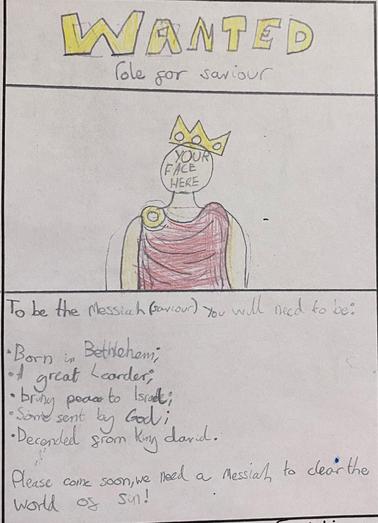 WANTED
Role for saviour
YOUR
FACE
HERE
To be the Messiah (saviour) you will need to be:
• Born in Bethlehem;
• A great Learder;
• bring peace to Israel;
• Some sent by God;
• Decended from King david.
Please come soon, we need a Messiah to clear the
world of sin!